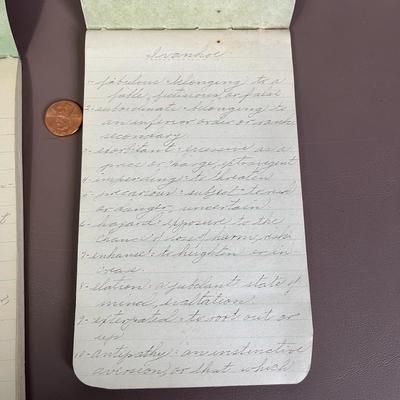 Ivanhoe
1- fabulous: belonging to a
fable, fictitious, or false
2- subordinate: belonging to
an inferior order or rank
secondary
3- exorbitant: excessive as a
price or charge, extravagent
4- impending: to threaten
5- precarious: subject to risk
or danger, uncertain
6- hazard: exposure to the
chance of loss of harm, risk
7- enhanse: to heighten or in-
crease.
8- elation: a jubilant state of
mind, exaltation.
9- exterpated: to root out or
up
10- antipathy: an instinctive
aversion, or that which